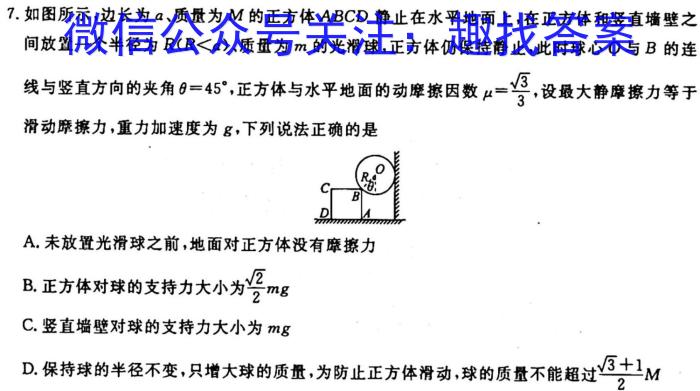 7.如图所示,边长为a、质量为M的正方体ABCD静止在水平地面上,在正方体和竖直墙壁之
间放置一个半径为R(R<a)、质量为m的光滑球,正方体仍保持静止,此时球心O与B的连
微信公众号关注:趣找答案
线与竖直方向的夹角θ=45°,正方体与水平地面的动摩擦因数μ=√3/3,设最大静摩擦力等于
滑动摩擦力,重力加速度为g,下列说法正确的是
O
R
θ
C
B
D
A
A.未放置光滑球之前,地面对正方体没有摩擦力
B.正方体对球的支持力大小为√2/2mg
C.竖直墙壁对球的支持力大小为mg
D.保持球的半径不变,只增大球的质量,为防止正方体滑动,球的质量不能超过(√3+1)/2M